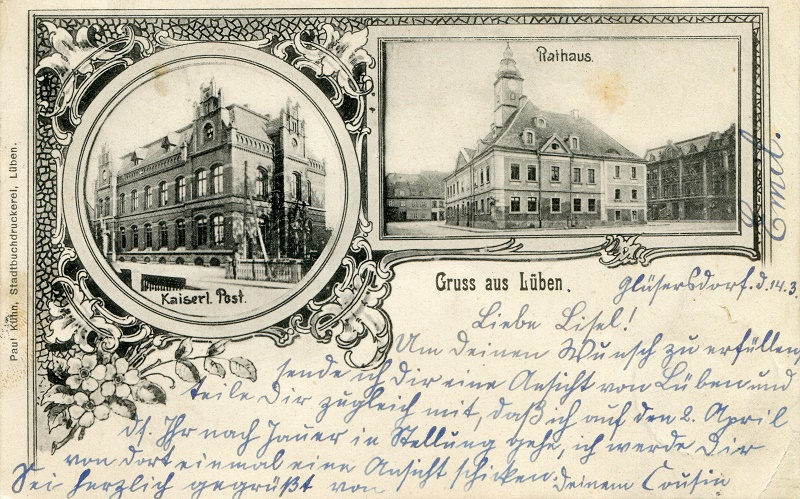 Rathaus.
Kaiserl. Post.
Gruss aus Lüben.
Paul Kühn, Stadtbuchdruckerei, Lüben.
Gläsersdorf. d. 14.3.
Liebe Lisel!
Um Deinen Wunsch zu erfüllen
sende ich Dir eine Ansicht von Lüben und
teile Dir zugleich mit, daß ich auf den 2. April
ds. Jhr nach Jauer in Stellung gehe, ich werde Dir
von dort einmal eine Ansicht schicken.
Sei herzlich gegrüßt von Deinem Cousin
Emil.